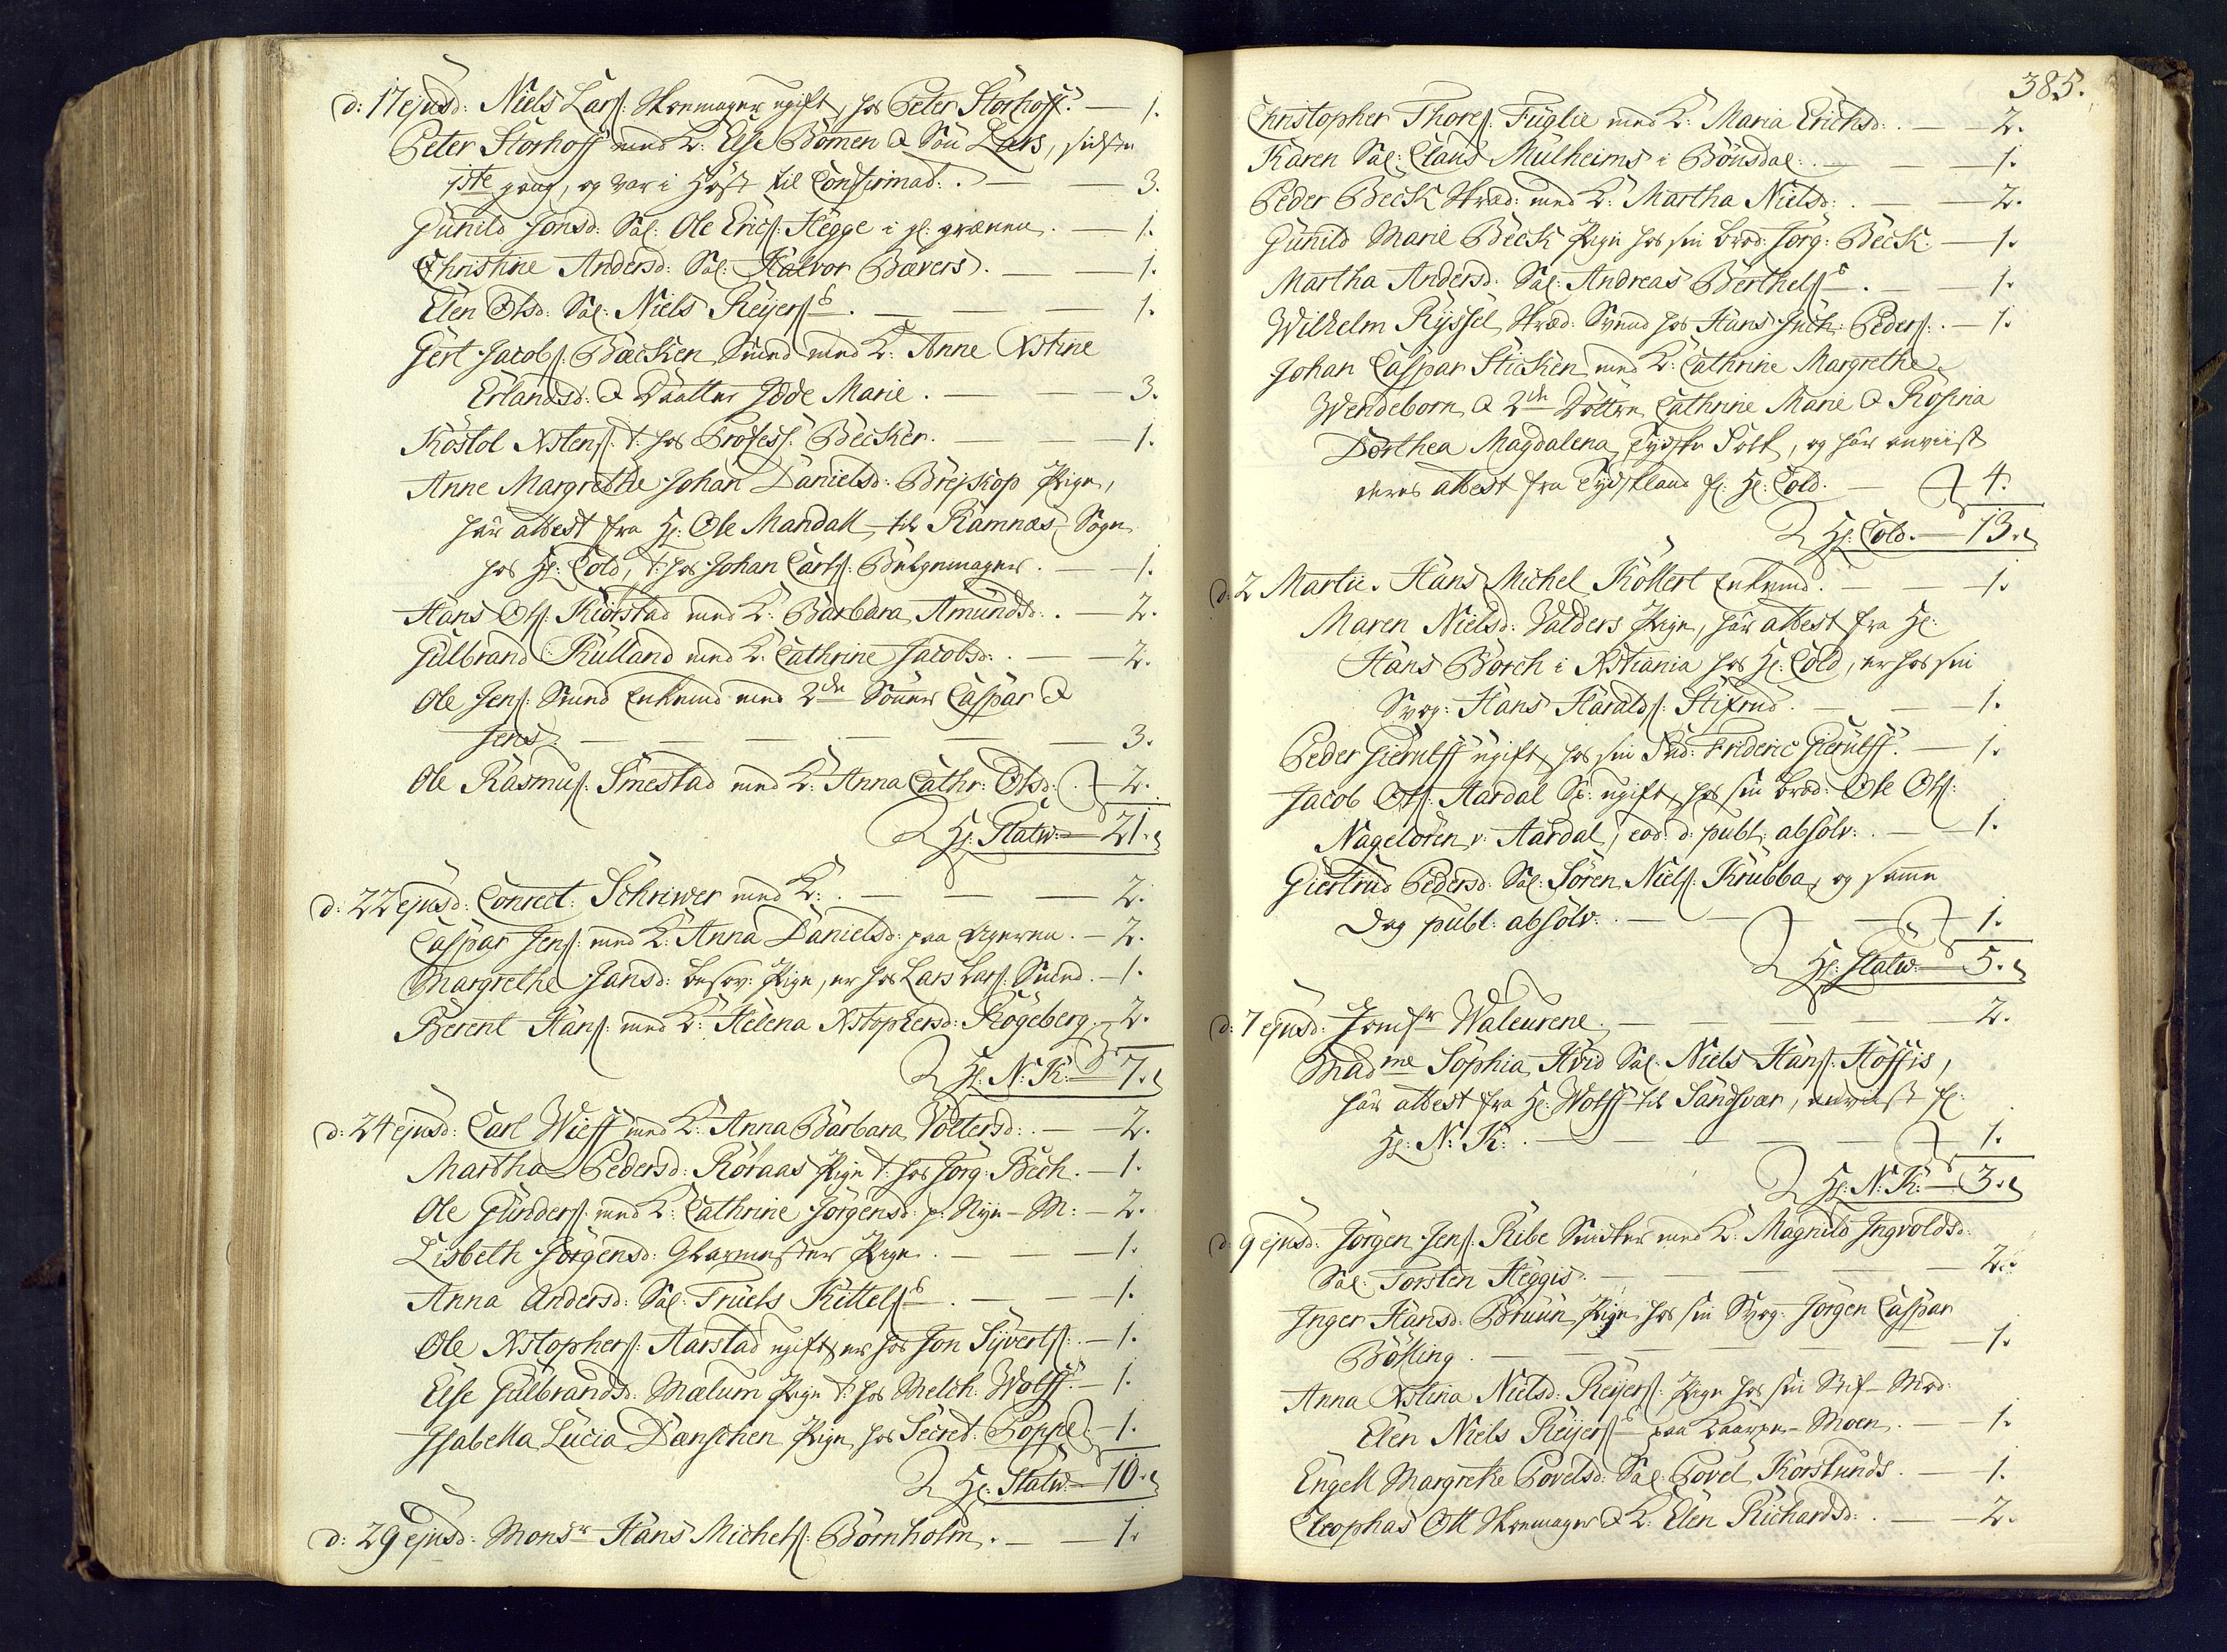 d: 17 ejusd: Niels Lars: Skomager ugift, hos Peter Storhoff. — 1.
Peter Storhoff med K: Else Bömen & Sön Lars, sidste
1ste gang, og var i Höst til Confirmat: . — 3.
Gunild Jonsd: Sal: Ole Erics: Hegge i gl: grænen. — 1.
Christine Andersd: Sal: Halvor Bævers. — 1.
Elen Olsd: Sal: Niels Reyers. — 1.
Gert Jacobs: Bæcken Smed med K: Anne Xstine
Erlandsd: & Daatter Jdde Marie. — 3.
Kostol Xstens: t: hos Profess: Becker. — 1.
Anne Margrethe Johan Danielsd: Brejskop Pige,
har attest fra Hr: Ole Mandall til Ramnæs Sogn
hos Hr: Cold, t: hos Johan Carls: Belgmager. — 1.
Hans Ols: Kiörstad med K: Barbara Amundsd: . — 2.
Gulbrand Rulland med K: Cathrine Jacobsd: . — 2.
Ole Jens: Smed Enkemd med 2de Sönner Caspar &
Jens. — 3.
Ole Rasmus: Smestad med K: Anna Cathr: Olsd: . 2.
Hr: Statw: — 21.
d: 22 ejusd: Conrect: Schriwer med K: . — 2.
Caspar Jens: med K: Anna Danielsd: paa Ageren. — 2.
Margrethe Jansd: besov: Pige, er hos Lars Lars: Smed. — 1.
Berent Hans: med K: Helena Xstophersd: Skogeberg. 2.
Hr: N: K: — 7.
d: 24 ejusd: Carl Wieff med K: Anna Barbara Voltersd: . — 2.
Martha Pedersd: Röraas Pige t: hos Jörg: Bech. — 1.
Ole Gunders: med K: Cathrine Jörgensd: p: Nye-M: — 2.
Lisbeth Jörgensd: Glarmester Pige. — 1.
Anna Andersd: Sal: Truels Kittels. — 1.
Ole Xstophers: Aarstad ugift, er hos Jon Syverts: . — 1.
Else Gulbrandsd: Mælum Pige t: hos Melch: Wolff. — 1.
Jsabella Lucia Dænschen Pige hos Secret: Poppe. — 1.
Hr: Statw: — 10.
d: 29 ejusd: Monsr Hans Michels: Bornholm. — 1.
385.
Christopher Thores: Fuglie med K: Maria Erichsd: . — 2.
Karen Sal: Claus Mülheims i Bönsdal. — 1.
Peder Beck Skræd: med K: Martha Nielsd: . — 2.
Gunild Marie Beck Pige hos sin brod: Jörg: Beck. — 1.
Martha Andersd: Sal: Andreas Berthels. — 1.
Wilhelm Ryssel Skræd: Svend hos Hans Juch: Peders: . — 1.
Johan Caspar Sticken med K: Cathrine Margrethe
Wendeborn & 2de Döttre Cathrine Marie & Rosina
Dorthea Magdalena, Tydske Folk, og har anviist
deres attest fra Tydskland f: Hr: Cold. — 4.
Hr: Cold. — 13.
d: 2 Martii. Hans Michel Köllert Enkemd. — 1.
Maren Nielsd: Valders Pige, har attest fra Hr:
Hans Borch i Xstiania hos Hr: Cold, er hos sin
Svog: Hans Haralds: Stifrud. — 1.
Peder Gierulff ugift, hos sin Fad: Frideric Gierulff. — 1.
Jacob Ols: Aardal Sr: ugift, hos sin brod: Ole Ols:
Nageloren v: Aardal, eod: d: publ: absolv: . — 1.
Giertrud Pedersd: Sal: Sören Niels: Krubba, og samme
Dag publ: absolv: . — 1.
Hr: Statw: — 5.
d: 7 ejusd: Jomfr Waleurene. — 2.
Madme Sophia Hvid Sal: Niels Hans: Hoffis,
har attest fra Hr: Wolff til Sandsvær, anviist f:
Hr: N: K: . — 1.
Hr: N: K: — 3.
d: 9 ejusd: Jörgen Jens: Ribe Snidker med K: Magnild Jngvoldsd:
Sal: Torsten Heggis. — 2.
Jnger Hansd: Bruun Pige hos sin Svog: Jörgen Caspar
Bösling. — 1.
Anna Xstina Nielsd: Reyers: Pige hos sin Stif-Mod:
Elen Niels Reyers paa Kaarpe-Moen. — 1.
Engell Margrethe Povelsd: Sal: Povel Korslunds. — 1.
Cleophas Ott Skomager & K: Elen Richardsd: . — 2.